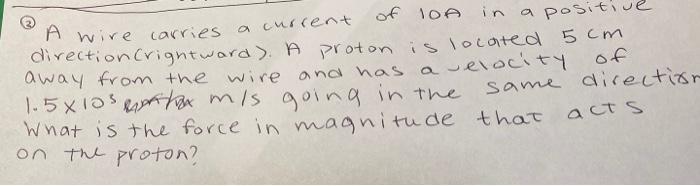 ③ A wire carries a current of 10A in a positive
direction (rightward). A proton is located 5 cm
away from the wire and has a velocity of
1.5x10⁵ m/s going in the same direction
What is the force in magnitude that acts
on the proton?